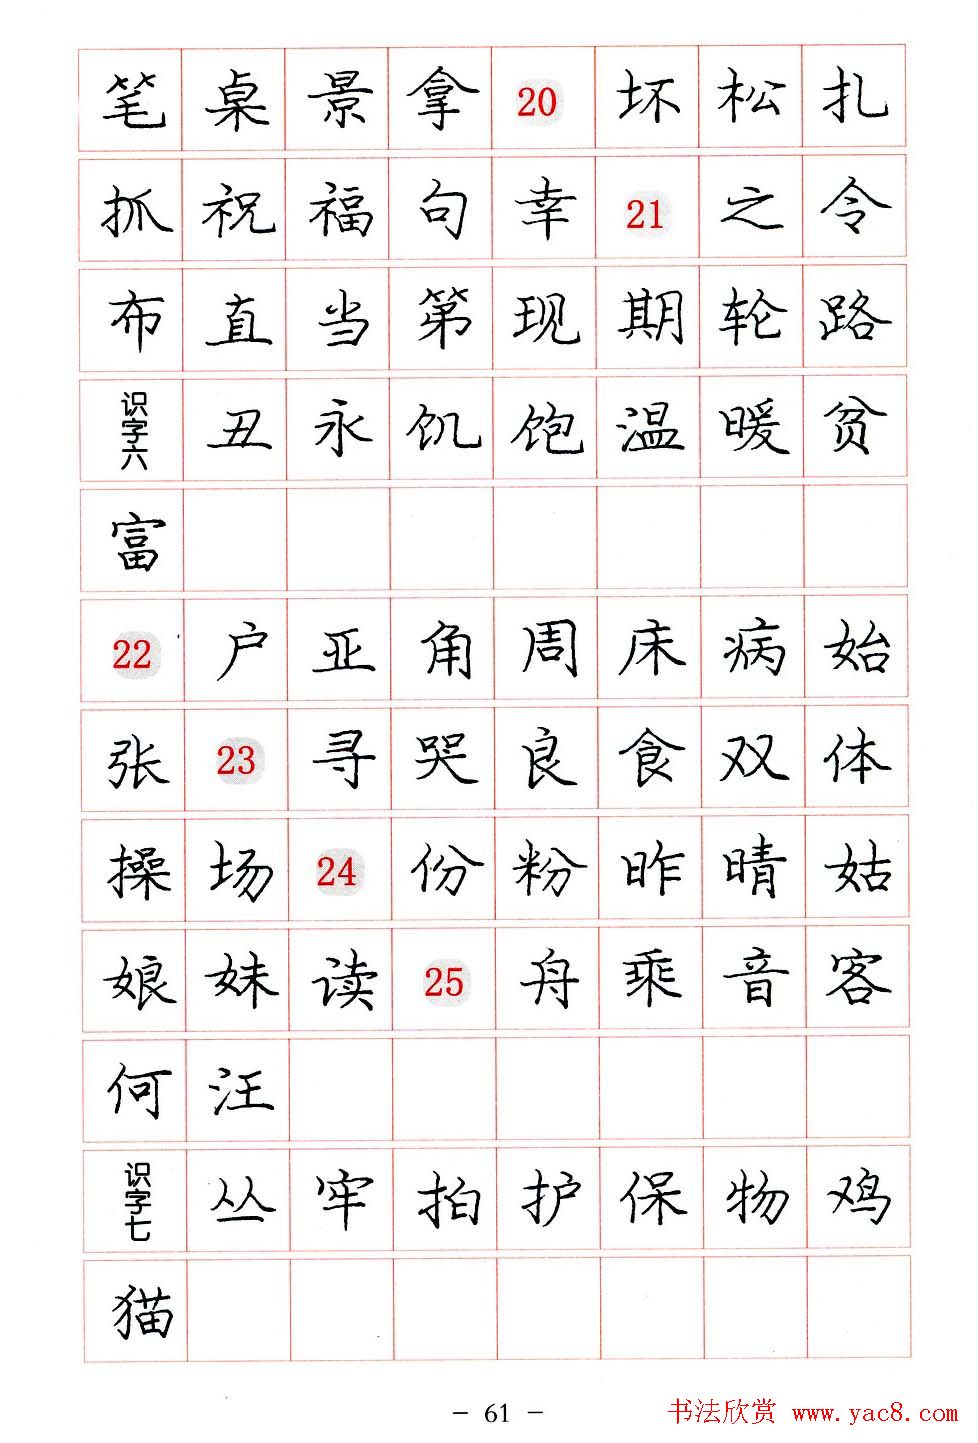 笔 桌 景 拿 20 坏 松 扎
抓 祝 福 句 幸 21 之 令
布 直 当 第 现 期 轮 路
识字六 丑 永 饥 饱 温 暖 贫
富
22 户 亚 角 周 床 病 始
张 23 寻 哭 良 食 双 体
操 场 24 份 粉 昨 晴 姑
娘 妹 读 25 舟 乘 音 客
何 汪
识字七 丛 牢 拍 护 保 物 鸡
猫
- 61 -
书法欣赏 www.yac8.com